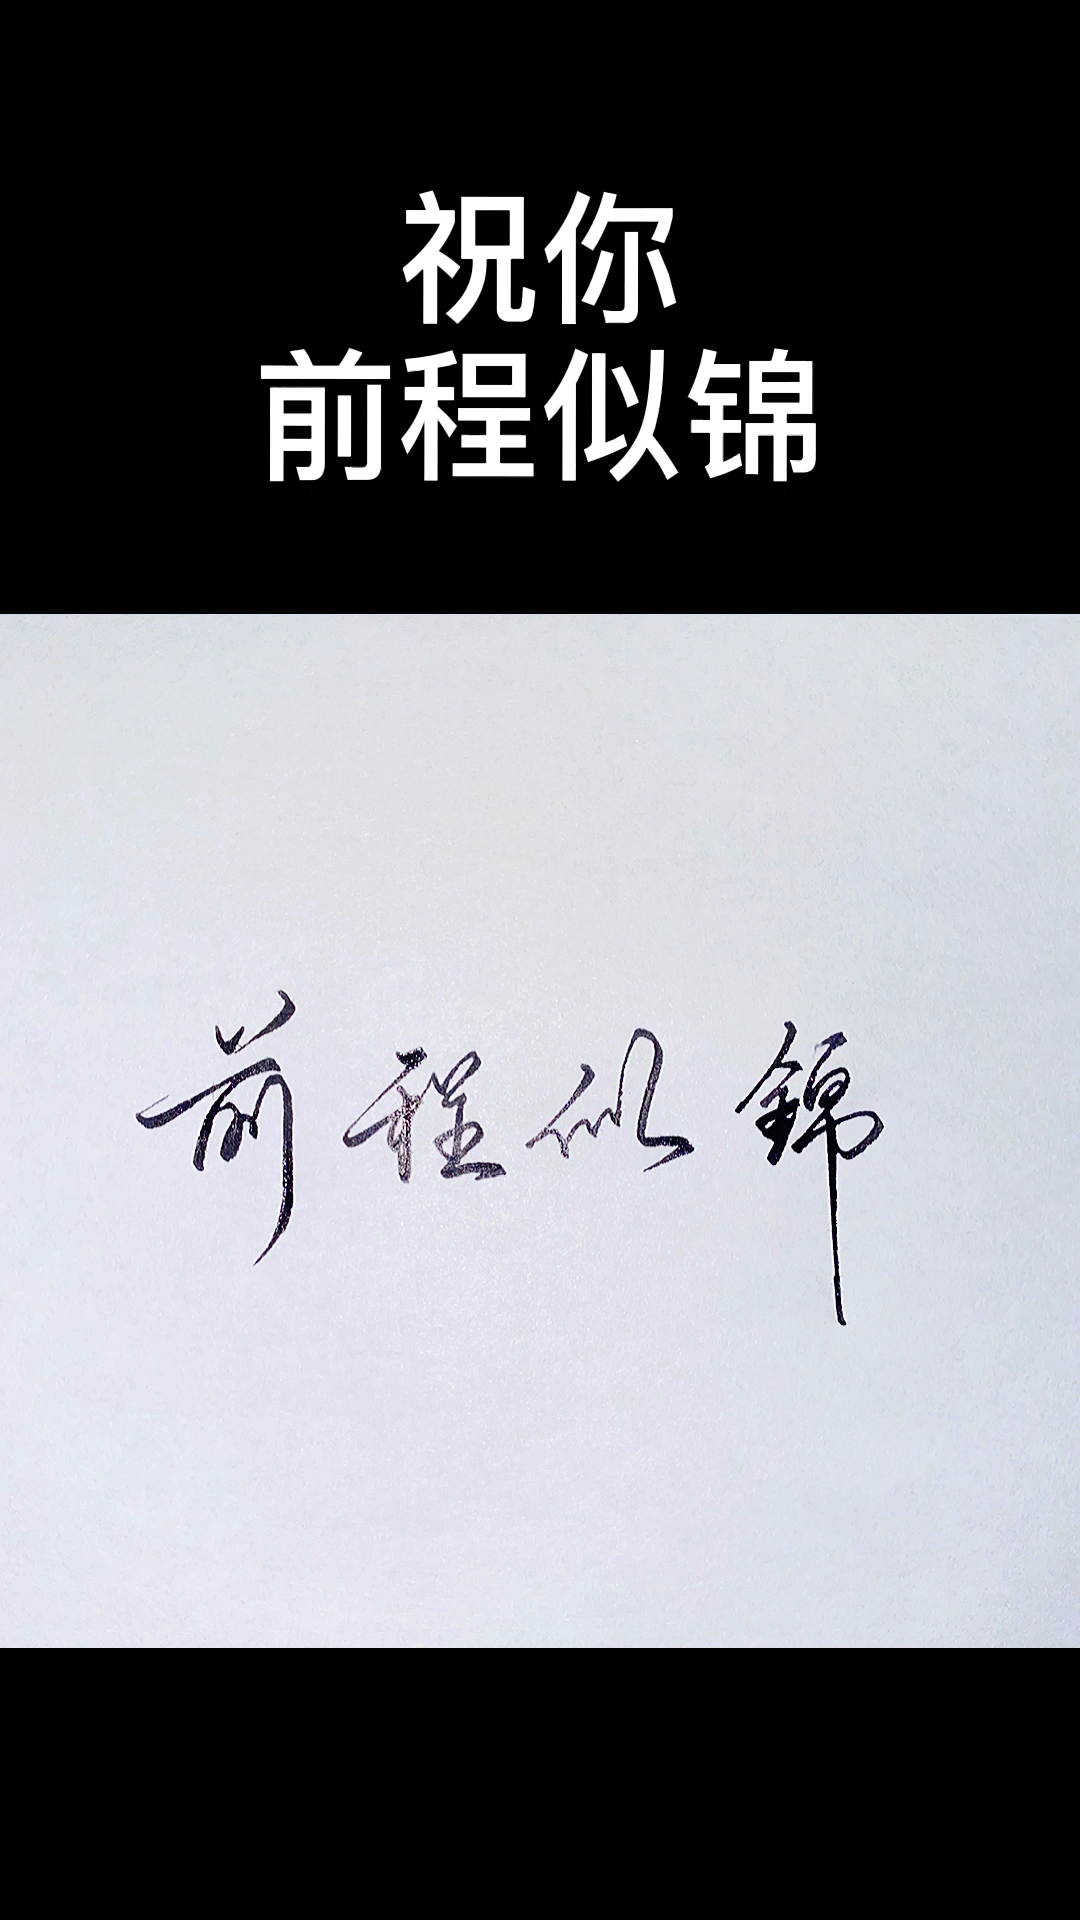 祝你
前程似锦
前程似錦